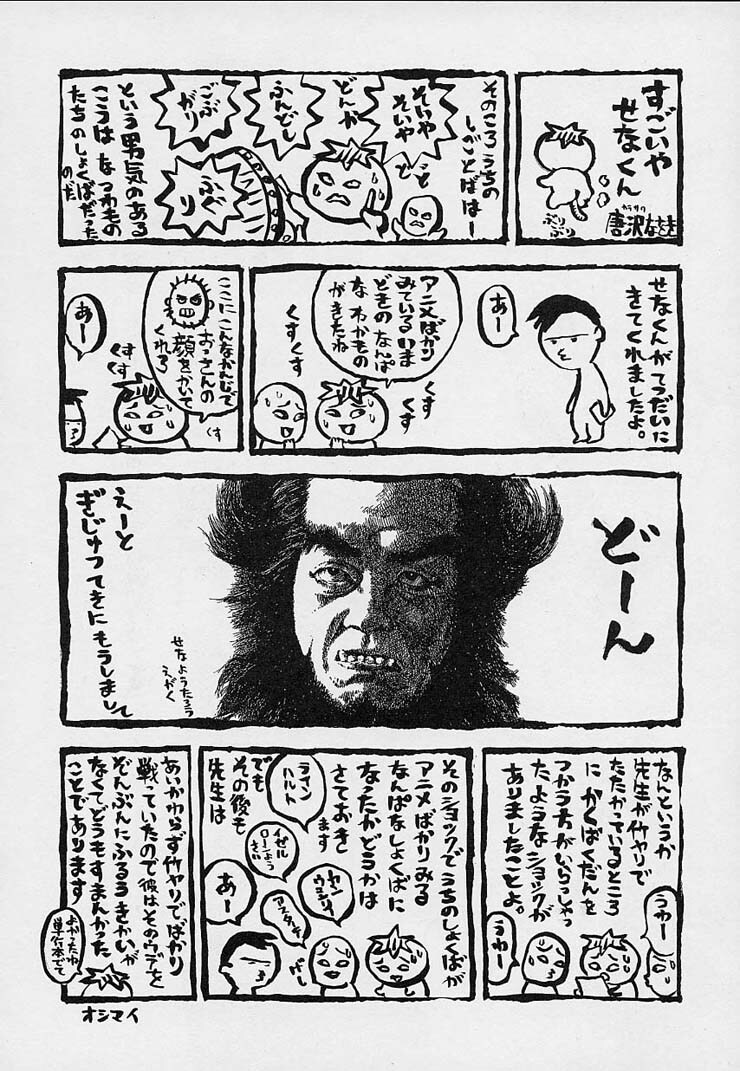 すごいや
せなくん
カラサワ
唐沢なをき
ぷりぷり
そのころうちの
しごとばはー
そいや
そいや
どんが
ふんどし
ごぶ
がり
ふぐ
り
と
で
という男気のある
こうはなつわもの
たちのしょくばだった
のだ
せなくんがてつだいに
きてくれましたよ。
あー
アニメばかり
みているいま
どきのなんぱ
なわかもの
がきたね
くす
くす
くすくす
ここにこんなかんじで
おっさんの
顔をかいて
くれろ
くす
くす
くす
あー
どーん
せなようたろう
えがく
えーと
ぎじゅつてきにもうしまして
なんというか
先生が竹ヤリで
たたかっているところ
にかくばくだんを
つかう方がいらっしゃっ
たようなショックが
ありましたことよ。
うわー
うわー
そのショックでうちのしょくばが
アニメばかりみる
なんぱなしょくばに
なったかどうかは
さておき
ます
でも
その後も
先生は
ライン
ハルト
イゼル
ローンよう
さい
ヤン
ウェンリー
アスターテ
あー
あいかわらず竹ヤリでばかり
戦っていたので彼はそのウデを
ぞんぶんにふるうきかいが
なくてどうもすまんかった
ことであります
よかったね
単行本でて
オシマイ